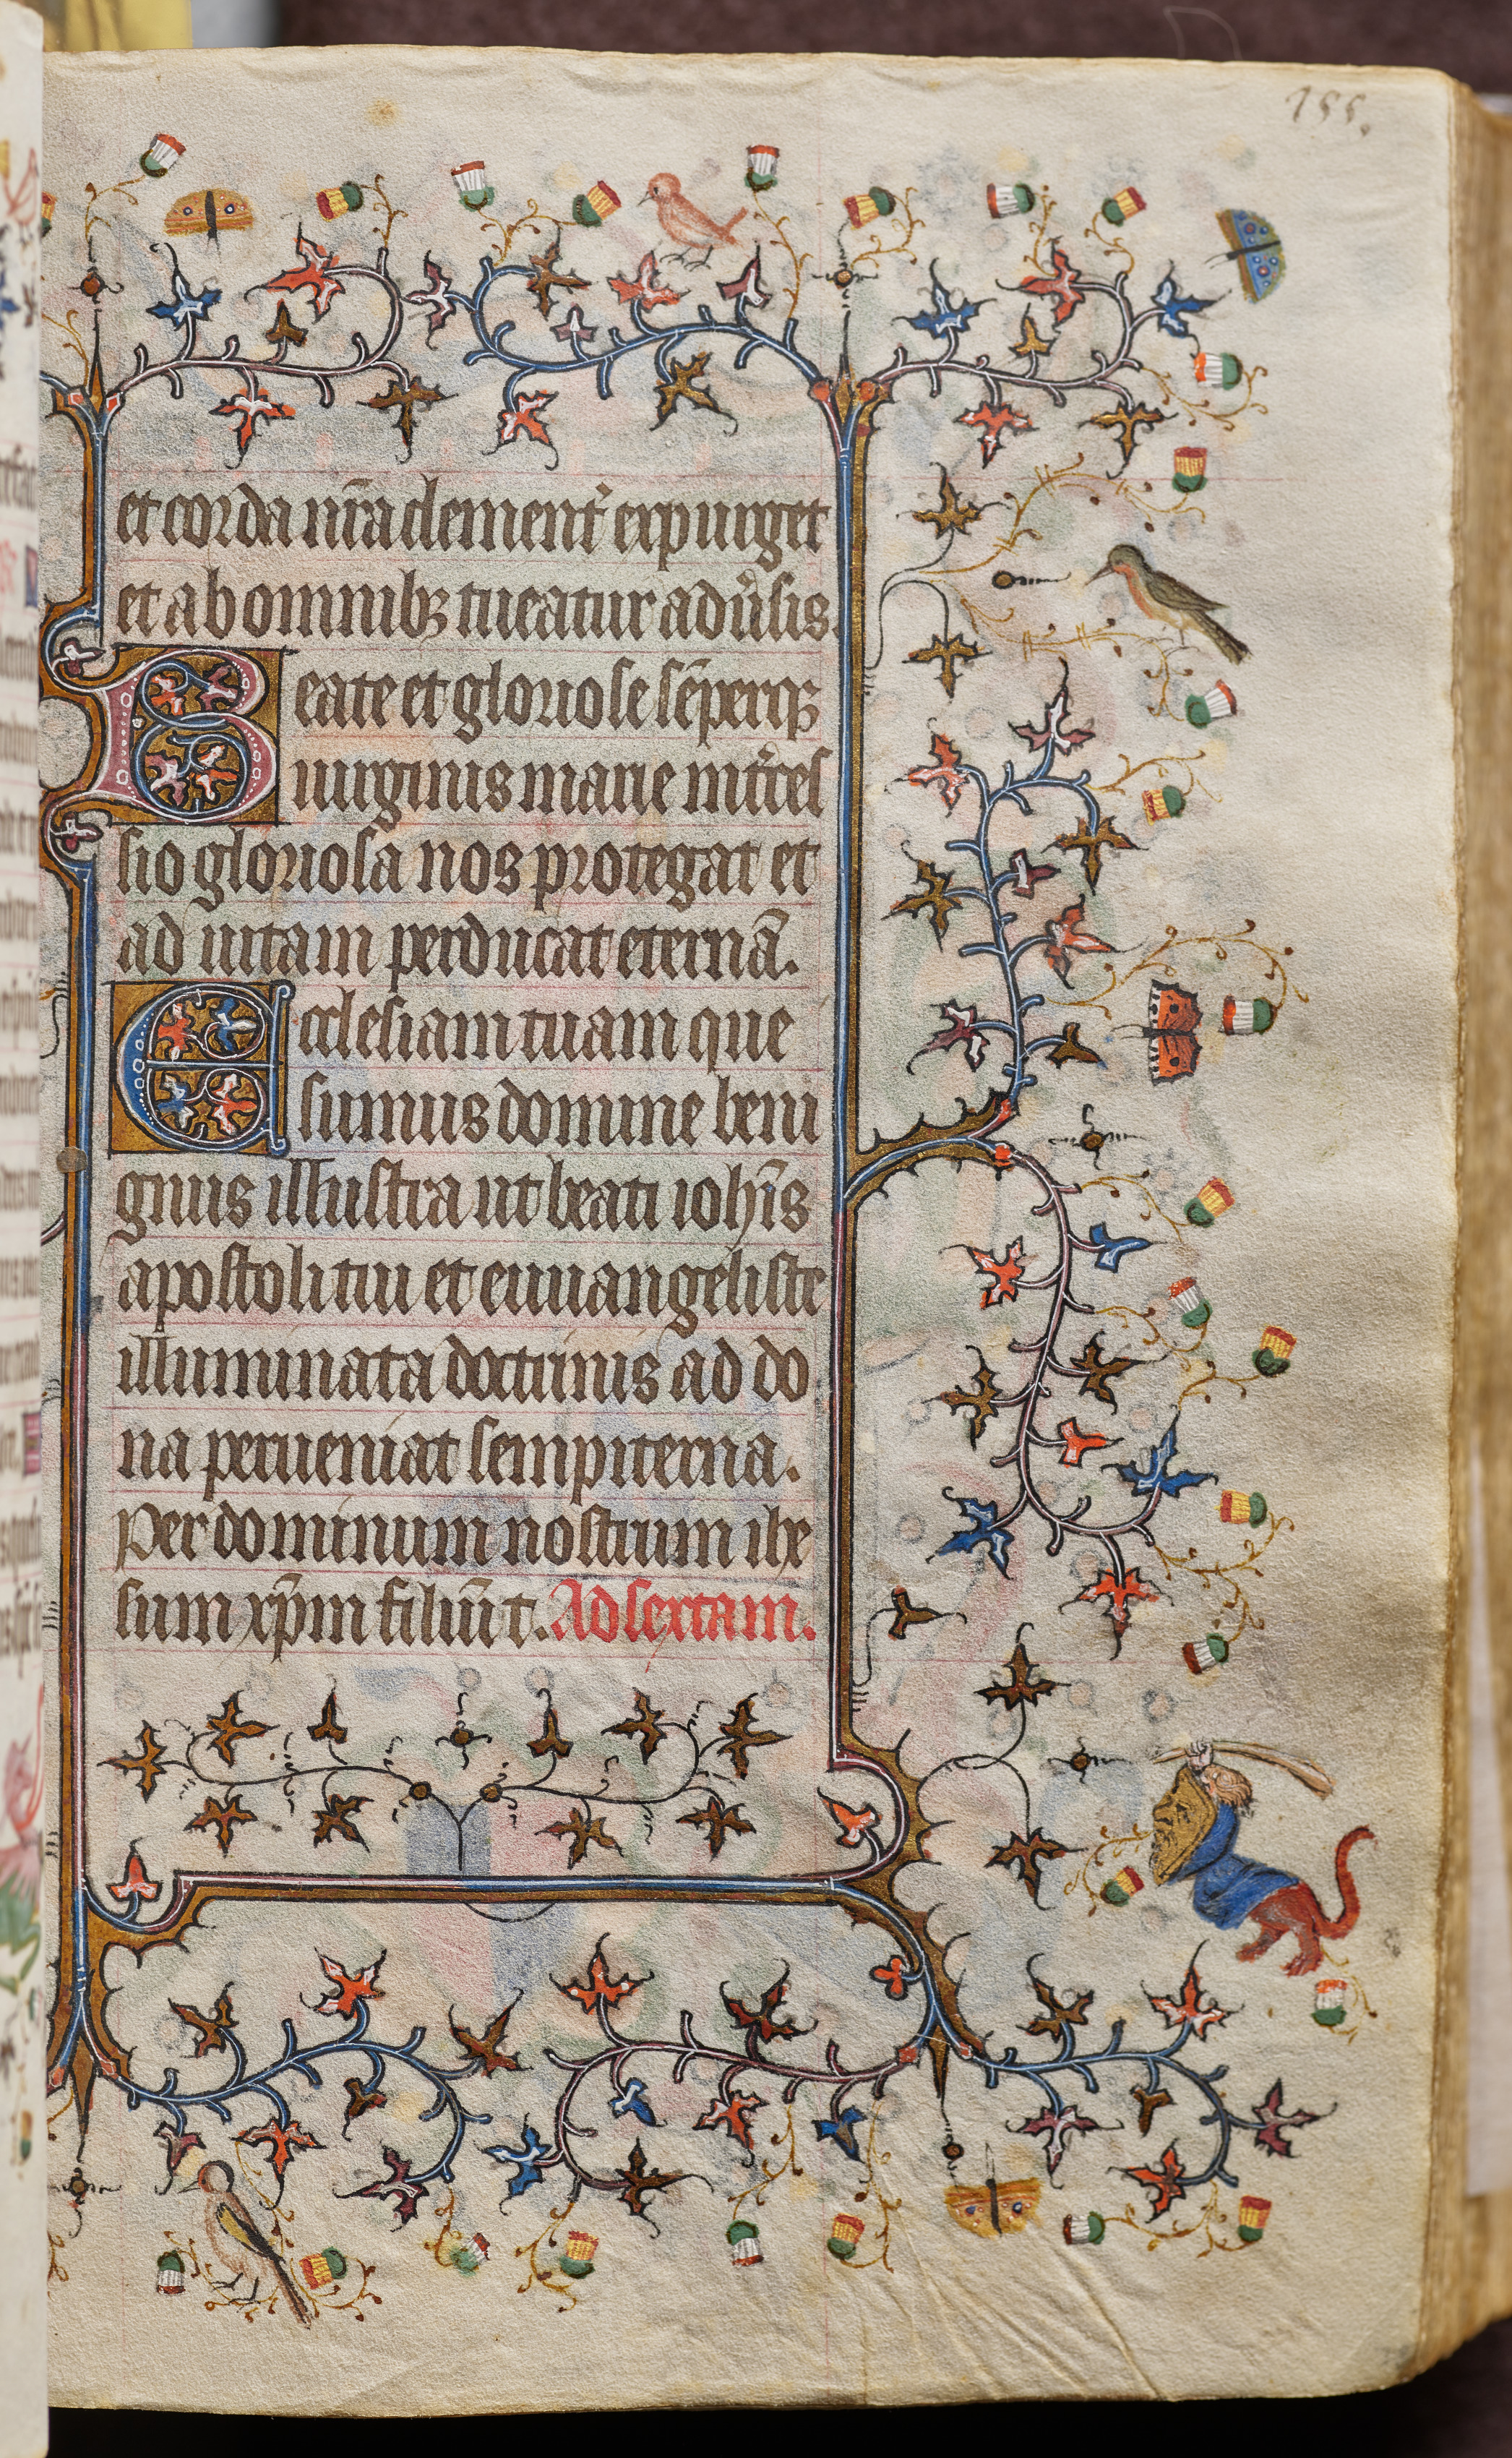 155.
et corda nr̄a clement᷑ expurget
et ab omnibꝫ tueatur adu᷑sis.
Beate et gloriose sēperqꝫ
uirginis marie int᷑ces
sio gloriosa nos protegat et
ad uitam perducat eternā.
Ecclesiam tuam que
sumus domine beni
gnus illustra ut beati ioh̄is
apostoli tui et euuangeliste
illuminata doctrinis ad do
na perueniat sempiterna.
Per dominum nostrum ihe
sum xp̄m filiū t. Ad sextam.